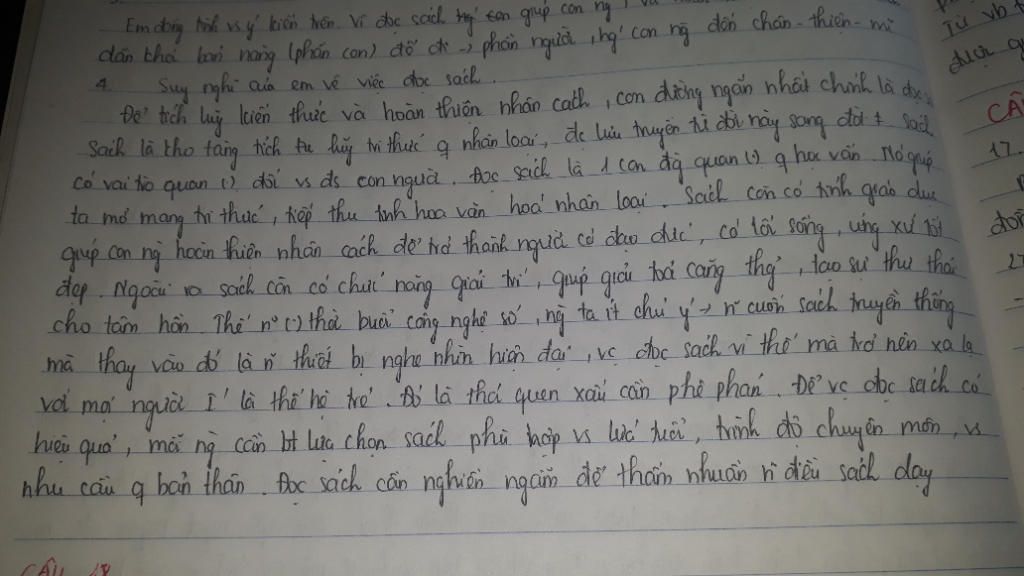 Em đồng tình vs ý kiến trên. Vì đọc sách giúp con ng
dần thoá bản năng (phần con) để đi → phần người, hg' con ng đến chân-thiện-mĩ
4. Suy nghĩ của em về việc đọc sách.
Để tích luỹ kiến thức và hoàn thiện nhân cách, con đường ngắn nhất chính là đọc
Sách là kho tàng tích tụ luỹ tri thức q nhân loại, đc lưu truyền từ đời này sang đời t Sách
có vai trò quan (.) đối vs đs con người. Đọc sách là 1 con đg quan (.) q học vấn. Nó giúp
ta mở mang tri thức, tiếp thu tinh hoa văn hoá nhân loại. Sách còn có tính giáo dục
giúp con ng hoàn thiện nhân cách để trở thành người có đạo đức, có lối sống, ứng xử tốt
đẹp. Ngoài ra sách còn có chức năng giải trí, giúp giải toả căng thg', tạo sự thư thái
cho tâm hồn. Thế nº (.) thời buổi công nghệ số, ng ta ít chú ý → n~ cuốn sách truyền thống
mà thay vào đó là n~ thiết bị nghe nhìn hiện đại, vc đọc sách vì thế mà trở nên xa lạ
với mọi người I' là thế hệ trẻ. Đó là thói quen xấu cần phê phán. Để vc đọc sách có
hiệu quả, mỗi ng cần bt lựa chọn sách phù hợp vs lứa tuổi, trình độ chuyên môn, vs
nhu cầu q bản thân. Đọc sách cần nghiền ngẫm để thấm nhuần n~ điều sách dạy
CÂU 18
Từ vb t
được q
CÂ
17.
đời
27